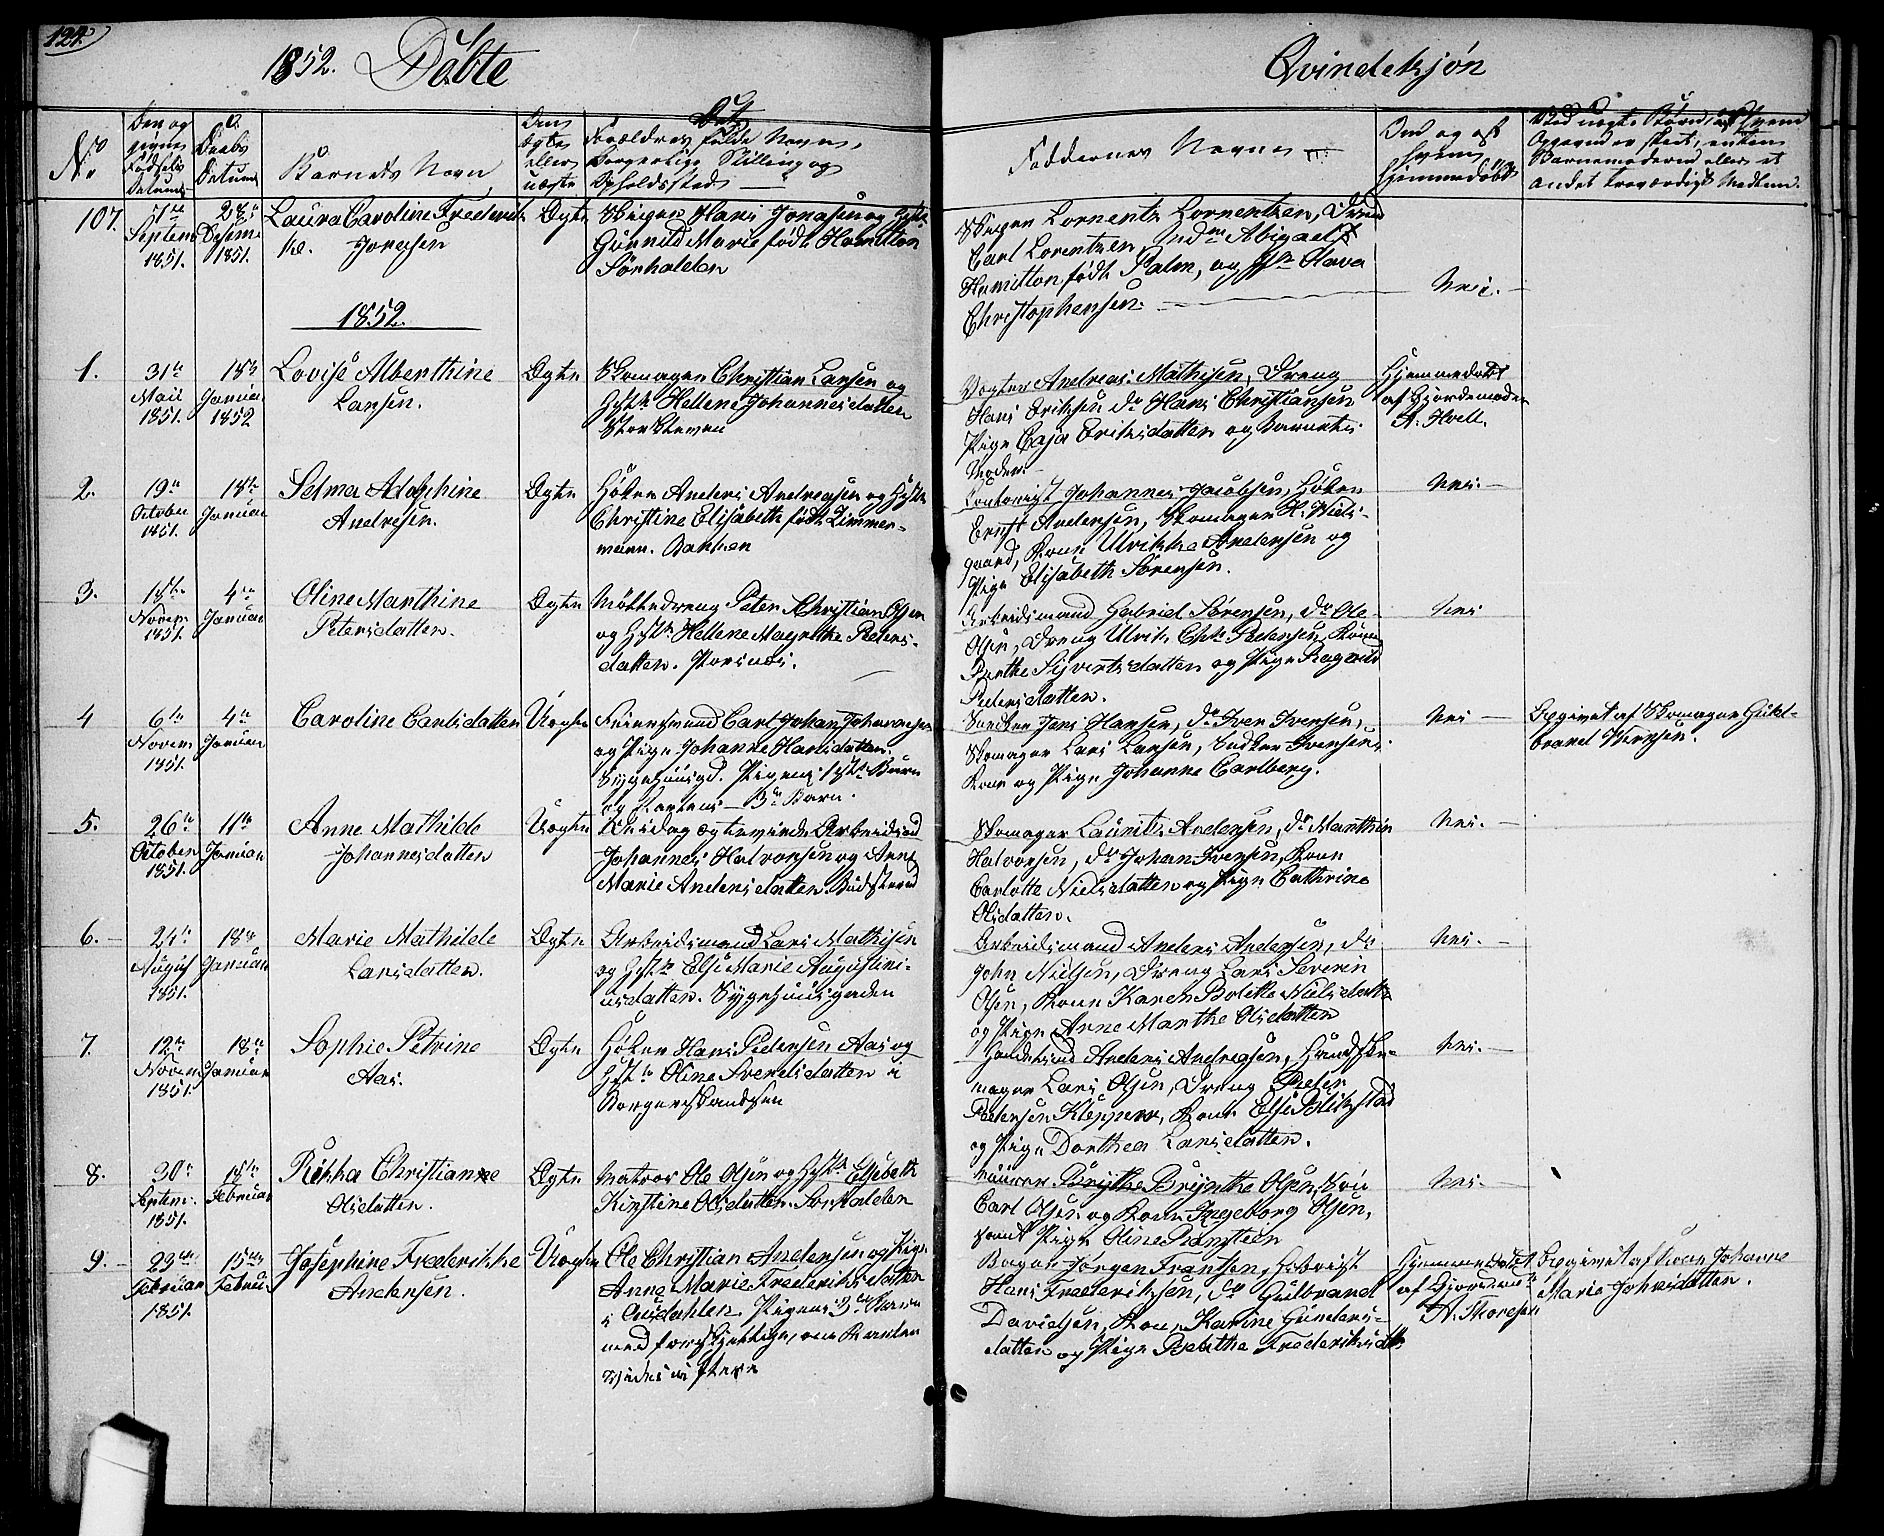 124.
1852. Döbte
Qvindekjön
No
Den og
Fødsels
Datum
Daabs
Datum
Barnets Navn
Om
Ægte
eller
uægte
Forældres fulde Navn,
Borgerlige Stilling og
Opholdssted
Faddernes Navne
Om og af
hvem
hjemmedøbt
Ved uægte Børn, af hvem
Opgaven er skeet, enten
Barnemoderen eller et
andet troværdigt Medlem.
107.
7de
Septem
1851.
28de
Desem
1851.
Laura Caroline Frederik-
ke. Jonasen
Ægte
Skipper Hans Jonasen og Hustr
Gunnild Marie født Hamilton
Sørhalden
Skipper Lorrentz Lorrentzen, Dreng
Carl Lorentzen, Md Abigael
Hamilton født Palm, og Jfr Olava
Christophersen.
Nei.
1852.
1.
31te
Mai
1851.
18de
Januar
1852
Lovise Alberthine
Larsen.
Ægte
Skomager Christian Larsen og
Hustr Hellene Johannesdatter
Vægter Andreas Mathisen, Dreng
Hans Eriksen do Hans Christiansen
Pige Caja Eriksdatter og Barnets
Moder.
Hjemmedøbt
af Gjordemoder
A. Hvell.
2.
19de
October
1851.
18de
Januar
Selma Adolphine
Andresen.
Ægte
Høker Anders Andreasen og Hustr
Christine Elisabeth født Zimmer-
mann. Bakken
Contorist Johannes Jacobsen, Høker
Ernst Andersen, Skomager H. Niels-
gaard, Kone Ulrikke Andersen og
Pige Elisabeth Sørensen.
Nei.
3.
15de
Novem
1851.
4de
Januar
Oline Marthine
Petersdatter.
Ægte
Møllerdreng Peter Christian Olsen
og Hustr Hellene Magrethe Peters-
datter. Porsnæs.
Arbeidsmand Gabriel Sørensen, do Ole
Olsen, Dreng Ulrik Chr Pedersen, Kone
Berthe Sivertsdatter og Pige Ragnild
Petersdatter.
Nei
4
6te
Novem
1851.
4de
Januar
Caroline Carlsdatter
Uægte
Feiersvend Carl Johan Johannesen
og Pige Johanne Hansdatter.
Sygehuusgd. Pigens 1ste Barn
og Karlens 3de Barn.
Snedker Jens Hansen, do Iver Iversen,
Skomager Lars Larsen, Snedker Iversens
Kone og Pige Johanne Carlberg.
Nei
Opgivet af Skomager Guld-
brand Iversen.
5.
26de
October
1851.
11te
Januar
Anne Mathilde
Johannesdatter
Uægte
Arbeidsmd
Johannes Halvorsen og Anne
Marie Andersdatter. Rødsfjeld
Skomager Laurits Andersen, do Marthin
Halvorsen, do Johan Iversen, Kone
Carlotte Nielsdatter og Pige Cathrine
Olsdatter.
Nei.
6.
24de
August
1851.
18de
Januar
Marie Mathilde
Larsdatter.
Ægte
Arbeidsmand Lars Mathisen
og Hustr Else Marie Augustini-
usdatter. Sygehuusgaden
Arbeidsmand Anders Andersen, do
John Nielsen, Dreng Lars Severin
Olsen, Kone Karen Bolette Nielsdattr
og Pige Anne Marthe Olsdatter
Nei.
7.
12te
Novem
1851.
18de
Januar
Sophie Petrine
Aas.
Ægte
Høker Hans Pedersen Aas og
Hustr Oline Svendsdatter i
Borgerskandsen
Handelsmd Anders Andreasen, Handske-
mager Lars Olsen, Dreng Peter
Pedersen Klepper, Kone Else Blikstad
og Pige Dorthea Larsdatter.
Nei.
8.
30te
Septem
1851.
15de
Februar
Rikka Christianne
Olsdatter.
Ægte
Matros Ole Olsen og Hustr Elisabeth
Kirstine Olsdatter. Sørhalden
Murer Brynthe Olsen, Kone
Carl Olsen og Kone Ingeborg Olsen,
samt Pige Oline Ramstein
Nei.
9.
23de
Februar
1851.
15de
Februar
Josephine Frederikke
Andersen.
Uægte
Ole Christian Andersen og Pige
Anne Marie Frederiksdatter
i Ousdahlen. Pigens 3de Barn
med forskjellige, om Karlen
vides ei flere
Bager Jørgen Fransen, Hoboist
Hans Frederiksen, do Gulbrand
Davidsen, Kone Karine Gunders-
datter og Pige Berthe Frederiksdtr
Hjemmedøbt
af Gjordem
A. Thoresen
Opgivet af Kone Johanne
Marie Johnsdatter.